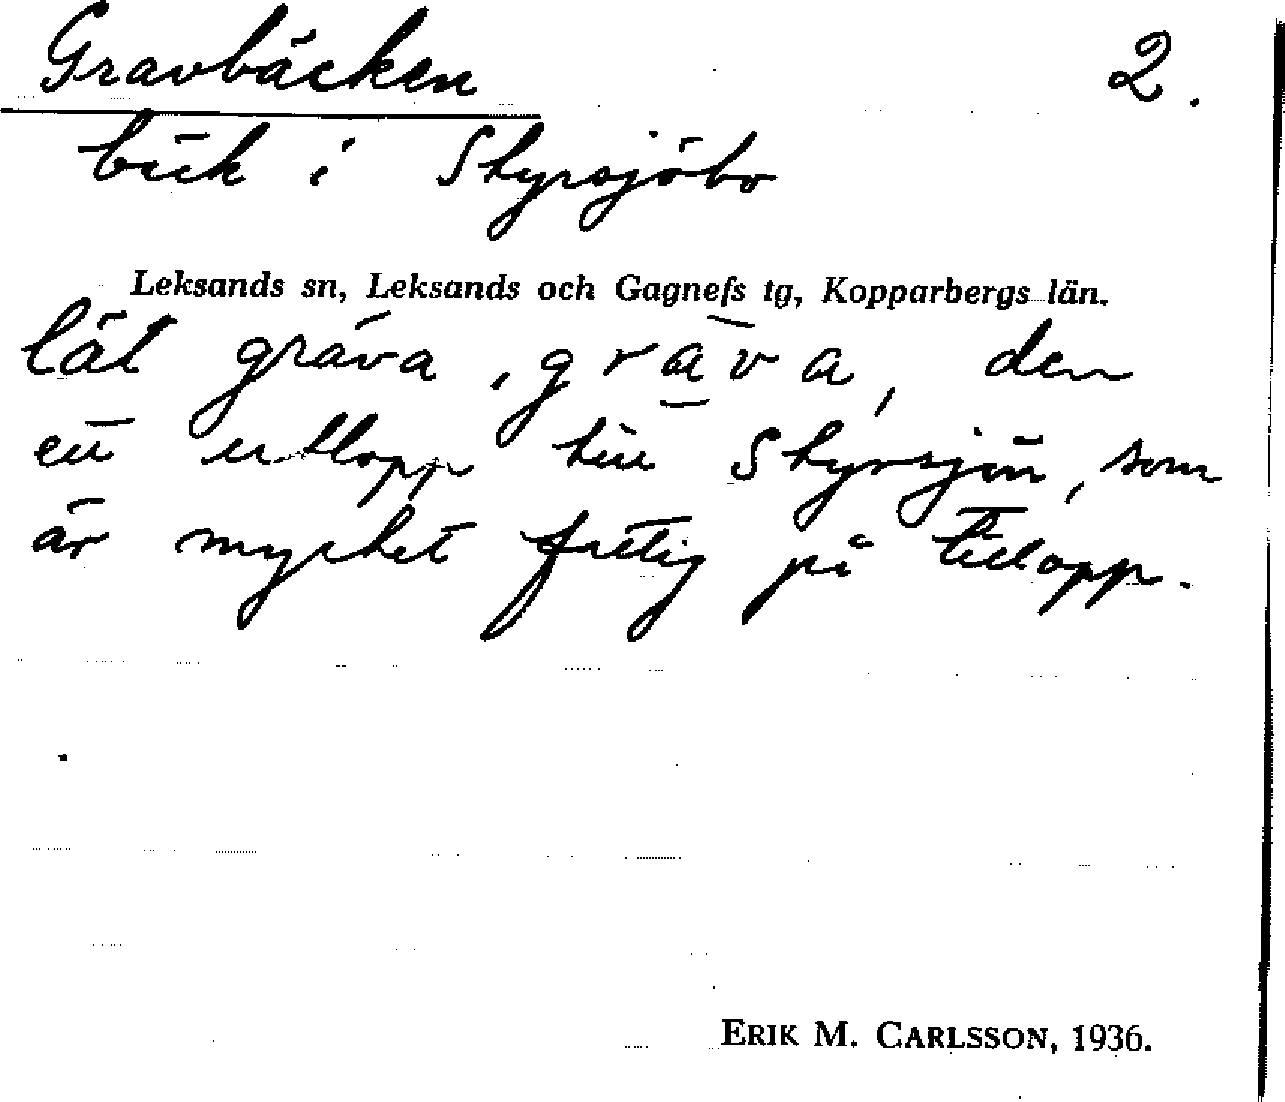 Gravbäcken 2.
bäck i Styrsjöbo
Leksands sn, Leksands och Gagnefs tg, Kopparbergs län.
lät gräva, gräva, den
ett utlopp till Styrsjön, som
är mycket fattig på tillopp.
ERIK M. CARLSSON, 1936.